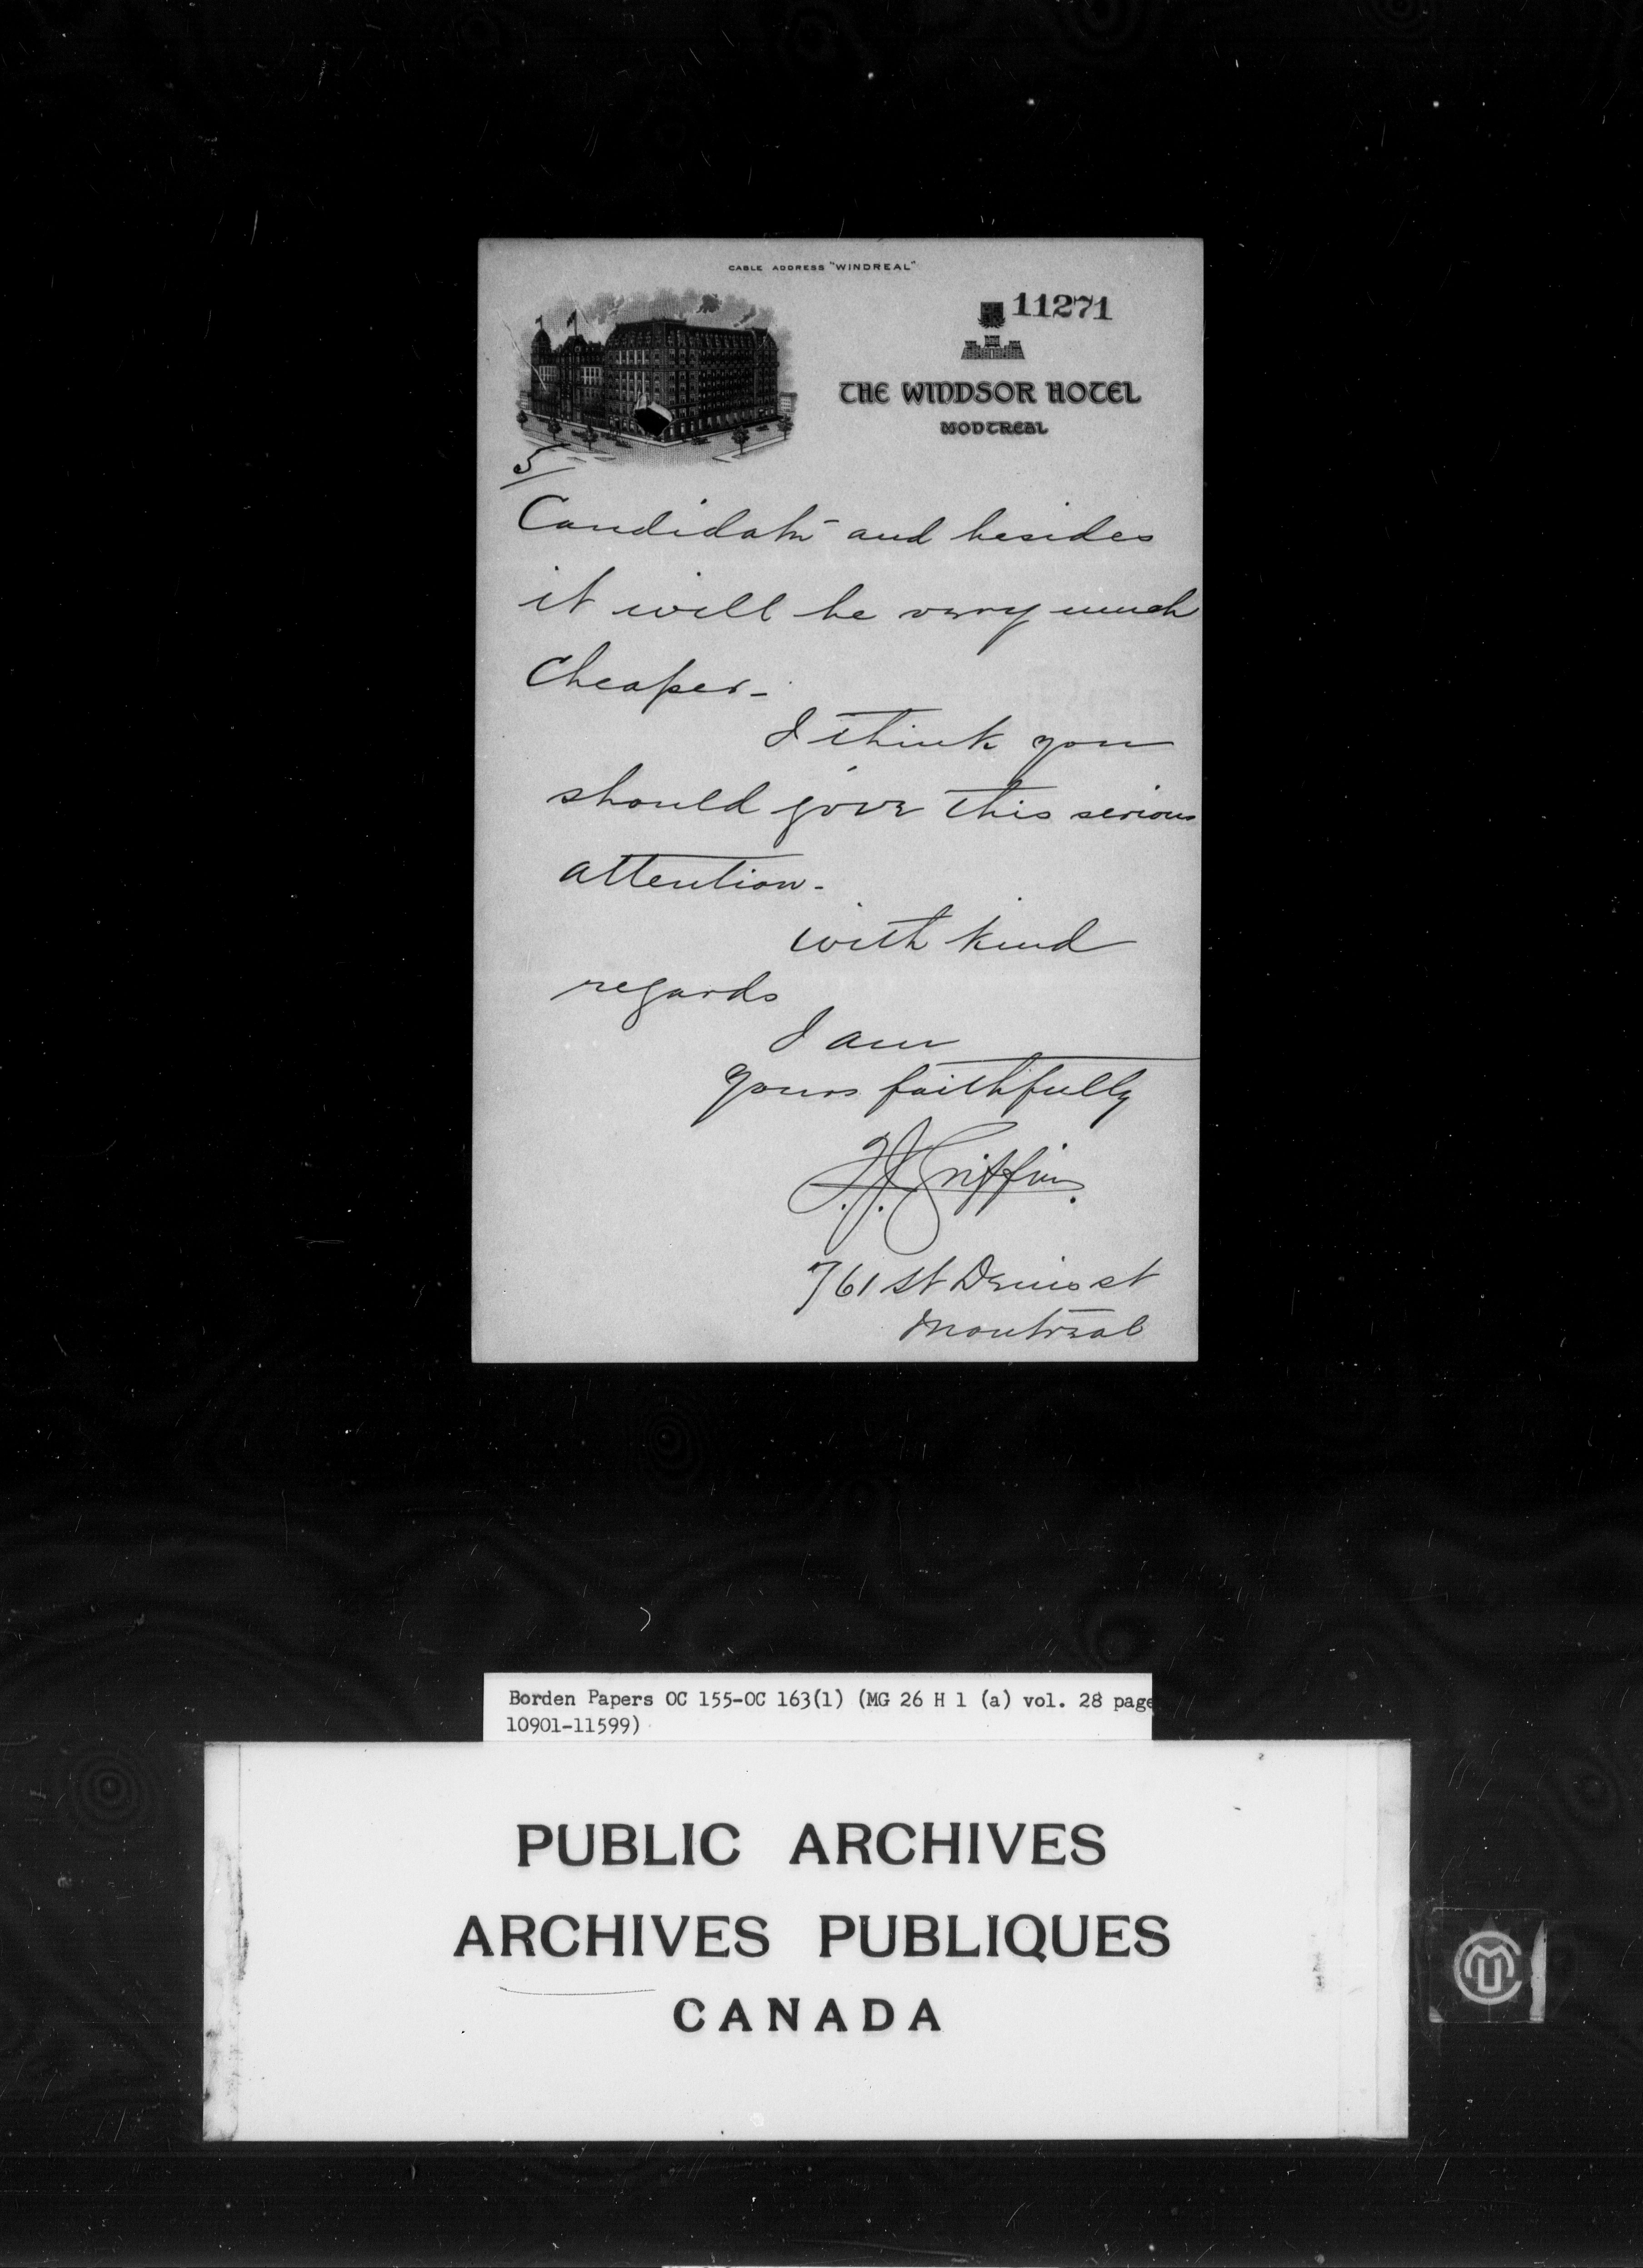 CABLE ADDRESS "WINDREAL"
11271
THE WINDSOR HOTEL
MONTREAL
5/
Candidate and besides
it will be very much
Cheaper-
I think you
should give this serious
attention-
with kind
regards
I am
yours faithfully
J.J. Griffin.
761 St Denis st
Montreal
Borden Papers OC 155-OC 163(1) (MG 26 H 1 (a) vol. 28 page
10901-11599)
PUBLIC ARCHIVES
ARCHIVES PUBLIQUES
CANADA